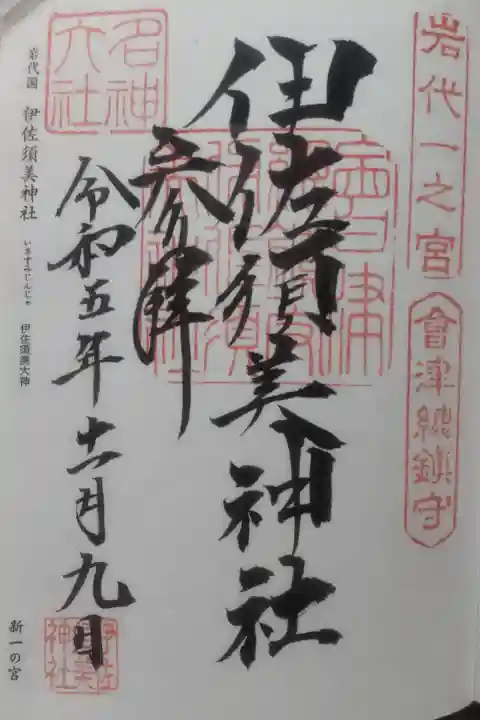 岩代一之宮
會津総鎮守
伊佐須美神社
参拝
令和五年十一月九日
名神大社
岩代国 伊佐須美神社 いさすみじんじゃ 伊佐須美大神
新一の宮